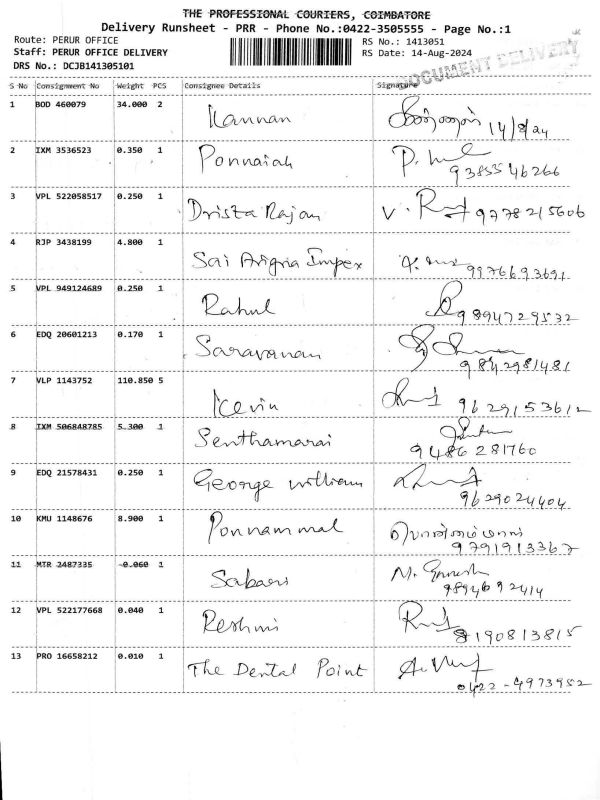 THE PROFESSIONAL COURIERS, COIMBATORE
Delivery Runsheet - PRR - Phone No.:0422-3505555 - Page No.:1
Route: PERUR OFFICE
Staff: PERUR OFFICE DELIVERY
DRS No.: DCJB141305101
RS No.: 1413051
RS Date: 14-Aug-2024
DOCUMENT DELIVERY
S No Consignment No Weight PCS Consignee Details Signature
1 BOD 460079 34.000 2 Kannan 14/8/24
2 IXM 3536523 0.350 1 Ponnaiah
9385546266
3 VPL 522058517 0.250 1 Drista Rajan 9778215606
4 RJP 3438199 4.800 1 Sai Arigna Impex 9976693691
5 VPL 949124689 0.250 1 Rahul
9894729532
6 EDQ 20601213 0.170 1 Saravanan
9842981481
7 VLP 1143752 110.850 5 Kevin 9629153612
8 IXM 506848785 5.300 1 Senthamarai
9486281760
9 EDQ 21578431 0.250 1 George William
9629024404
10 KMU 1148676 8.900 1 Ponnammal பொன்னம்மாள்
9791913367
11 MTR 2487335 0.060 1 Sabari M. Ganesh
9894692414
12 VPL 522177668 0.040 1 Reshmi
8190813815
13 PRO 16658212 0.010 1 The Dental Point
0422-4973952